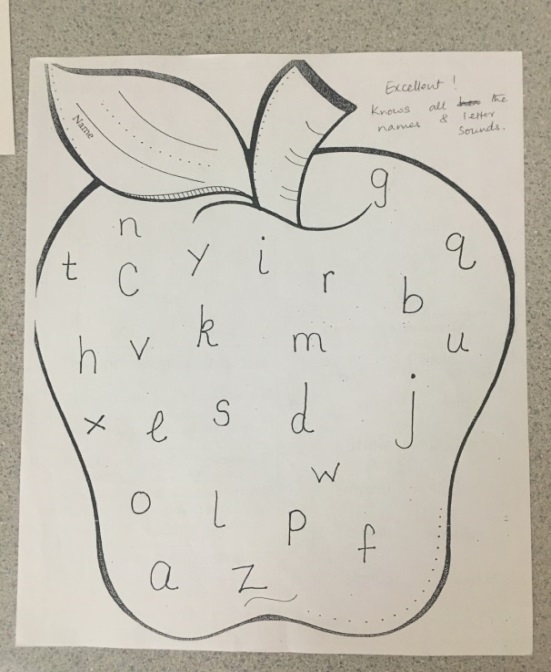 Excellent!
Knows all the
names & letter
Sounds.
Name
g
n
t c y i r q
b
h v k m u
x e s d j
w
o l p f
a z